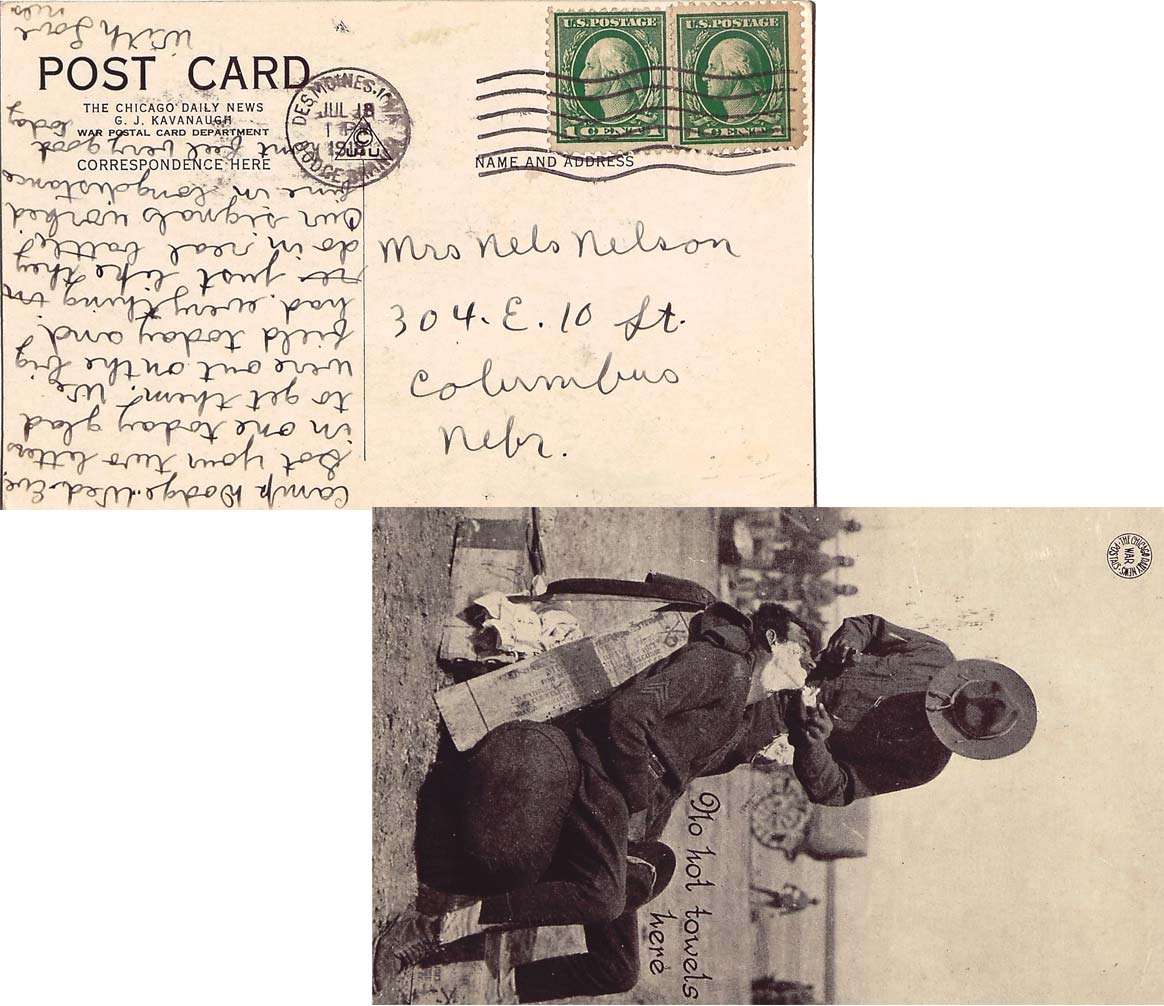 POST CARD
THE CHICAGO DAILY NEWS
G. J. KAVANAUGH
WAR POSTAL CARD DEPARTMENT
CORRESPONDENCE HERE
DES MOINES, IOWA
JUL 18
U.S. POSTAGE
1 CENT 1
U.S. POSTAGE
1 CENTS 1
NAME AND ADDRESS
Mrs Nels Nelson
304. E. 10 St.
Columbus
Nebr.
Camp Dodge. Wed. Eve.
Got your two letters
in one today glad
to get them. We
were out on the big
field today and
had everything in
just like they
do in real battle.
Our signals worked
fine in long distance
feel very good
today
With Love
Nels
THE CHICAGO DAILY NEWS
WAR
POSTALS
No hot towels
here